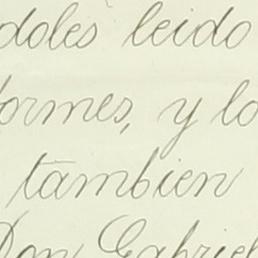 doles leido
formes, y lo
tambien
Don Gabriel